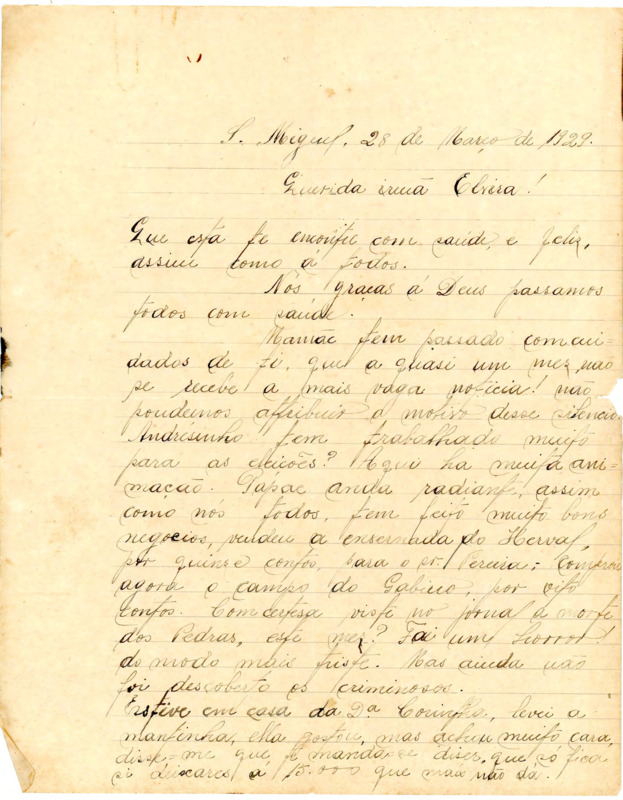 S. Miguel, 28 de Março de 1929.
Querida irmã Elvira!
Que esta te encontre com saúde, e feliz,
assim como á todos.
Nós graças á Deus passamos
todos com saúde.
Mamãe tem passado com cui-
dados de ti, que a quasi um mez não
se recebe a mais vaga noticia! não
poudemos attribuir o motivo desse silencio.
Andrésinho tem trabalhado muito
para as eleições? Aqui ha muita ani-
mação. Papae anda radiante, assim
como nós todos, tem feito muito bons
negocios, vendeu a ensernada do Herval,
por quinse contos, para o sr. Pereira; comprou
agora o campo do Gabino, por oito
contos. Comcertesa viste no jornal a morte
dos Pedras, este mez? Foi um horror!
do modo mais triste. Mas ainda não
foi descoberto os criminosos.
Estive em casa da Dª Corintha, levei a
mantinha, ella gostou, mas achou muito cara,
disse-me que te mandasse diser, que só fica
si deixares a 15.000 que mais não dá.